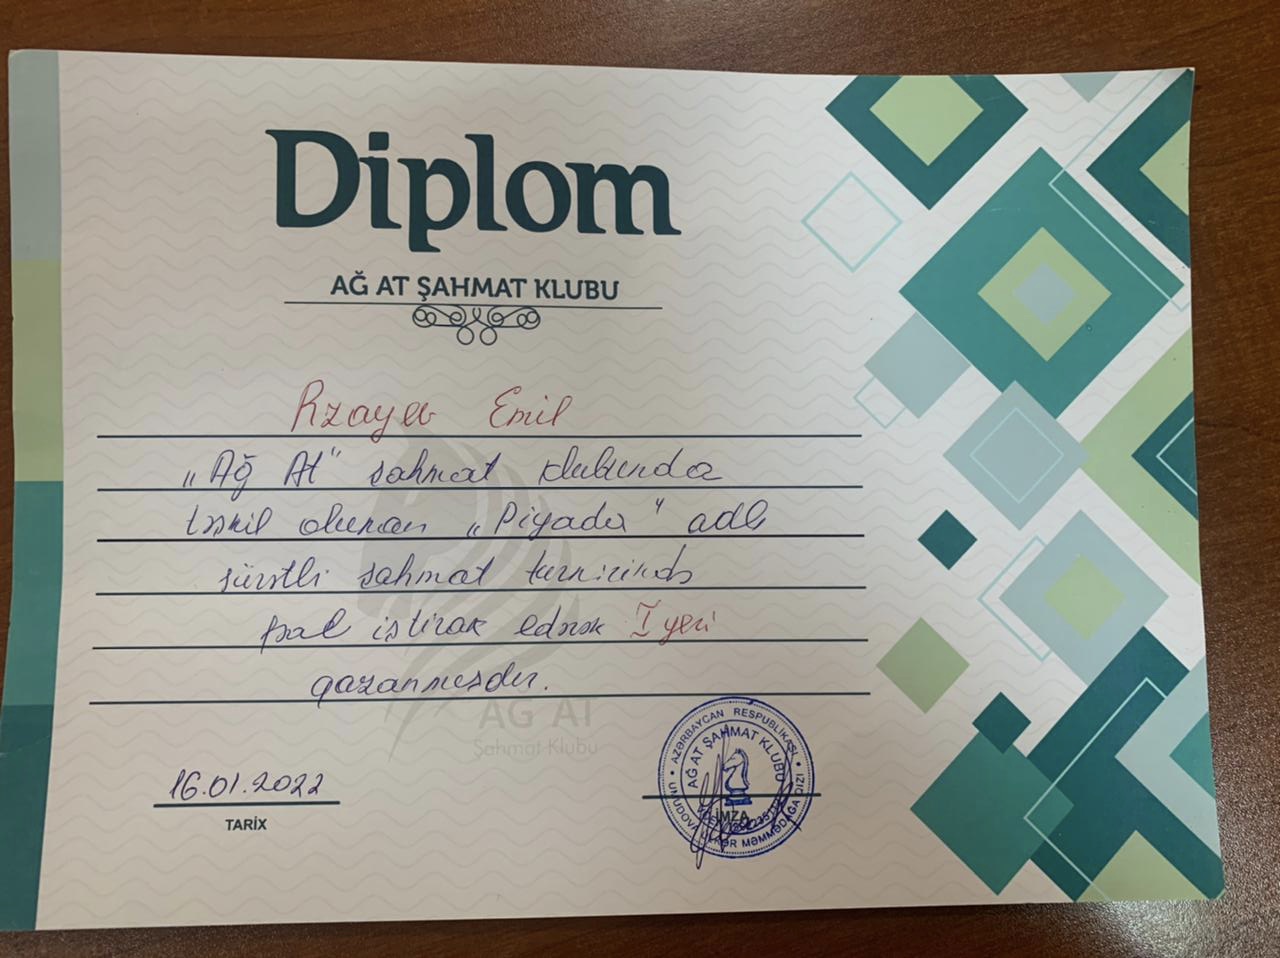 Diplom
AĞ AT ŞAHMAT KLUBU
Rzayev Emil
"Ağ At" şahmat klubunda
təşkil olunan "Piyada" adlı
sürətli şahmat turnirində
fəal iştirak edərək I yeri
qazanmışdır.
AĞ AT
Şahmat Klubu
16.01.2022
TARİX
AZƏRBAYCAN RESPUBLİKASI
AĞ AT ŞAHMAT KLUBU
İMZA
ÜLKƏR MƏMMƏDAĞA QIZI